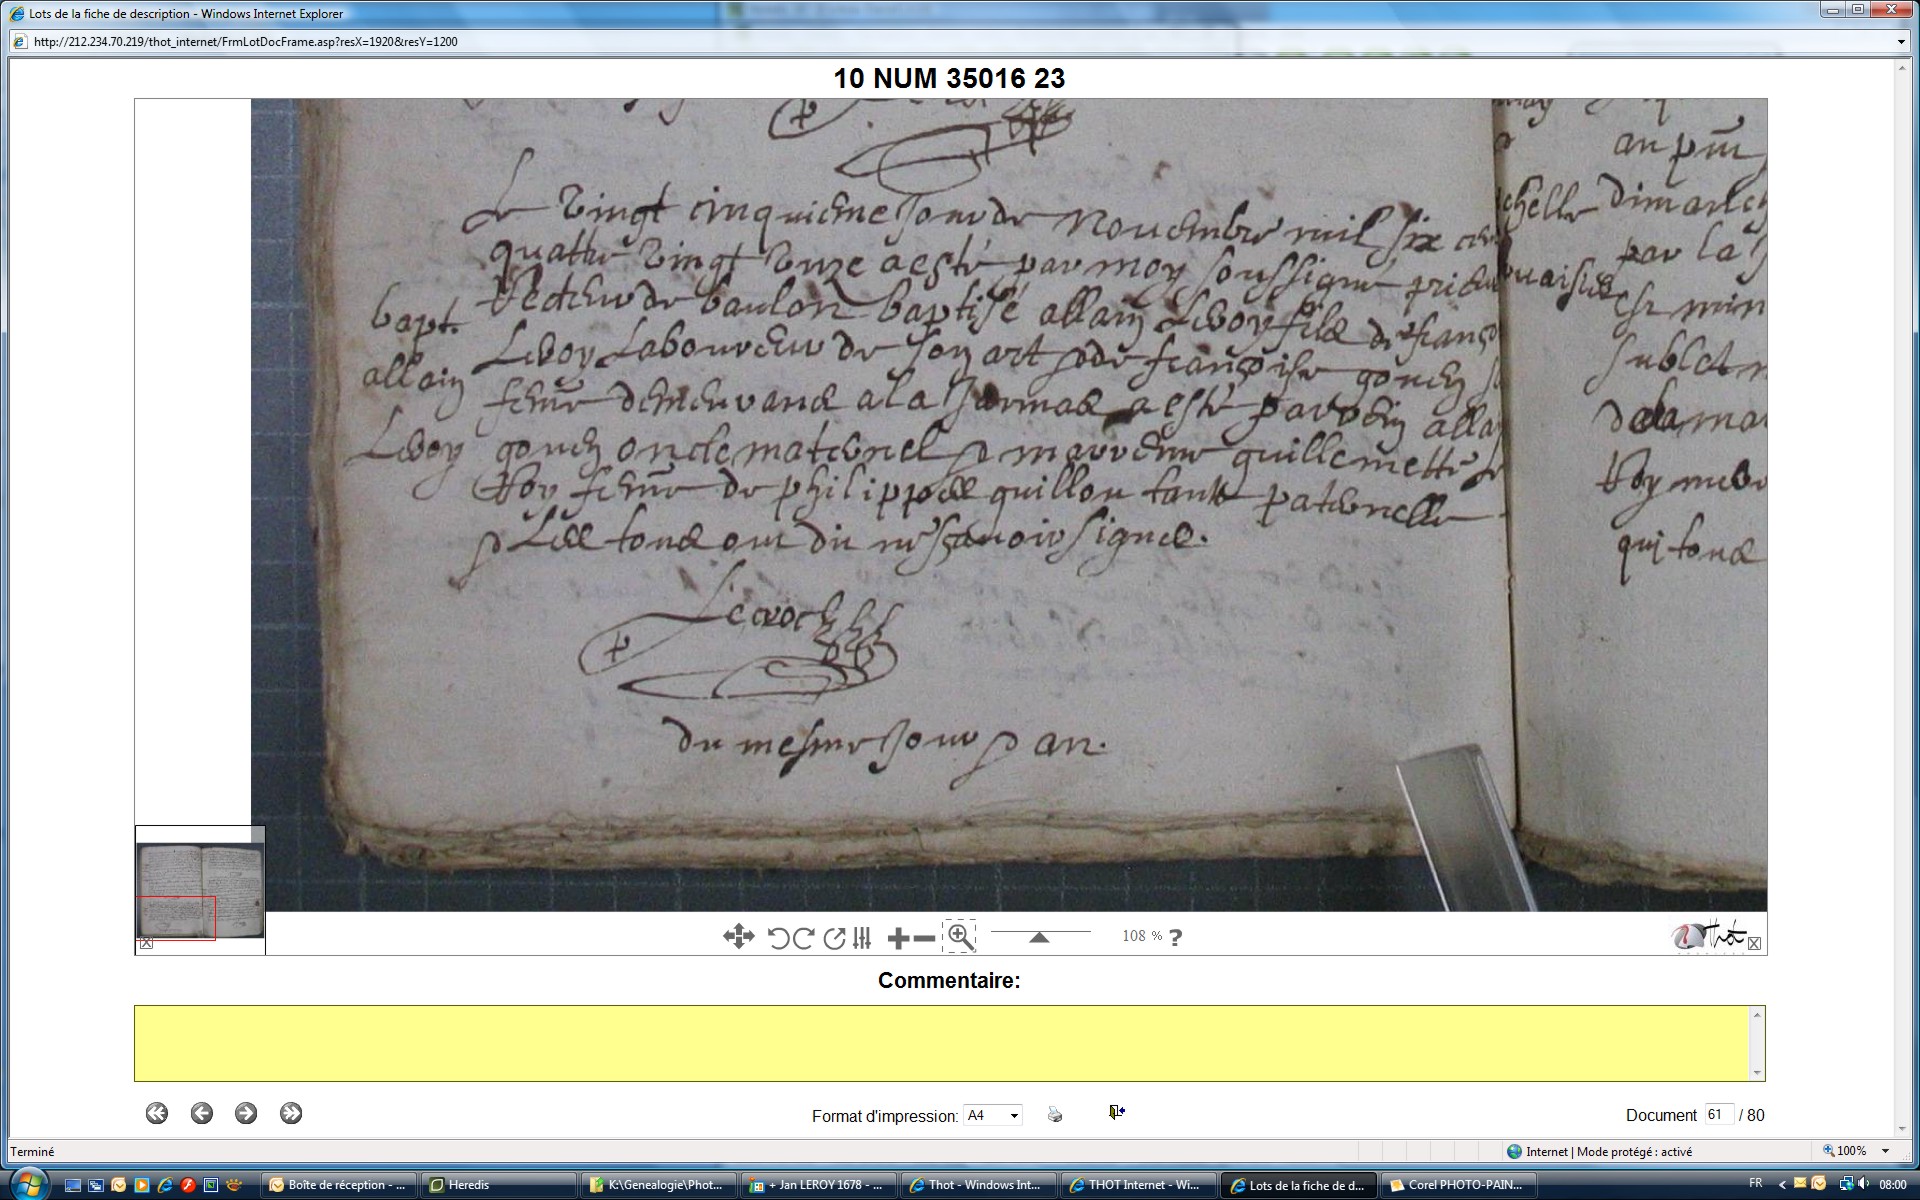 Lots de la fiche de description - Windows Internet Explorer
http://212.234.70.219/thot_internet/FrmLotDocFrame.asp?resX=1920&resY=1200
10 NUM 35016 23
Le vingt cinquieme jour de Novembre mil six cen
quattre vingt unze a esté par moy soussigné prieur
Recteur de baulon baptisé allain Leroy fils de franço
Leroy Laboureur de son art et de françoise gouen sa
feme demeurans a la a esté parrein allai
gouen oncle maternel et marreine guillemette le
Roy feme de philippes guillou tante paternelle
et Lesd tous ont dit ne sçavoir signer.
bapt.
allain
Leroy
du mesme jour et an.
an
dimanch
par la
qui tous
108 % ?
Thot
Commentaire:
Format d'impression: A4
Document 61 / 80
Terminé
Internet | Mode protégé : activé
100%
Boîte de réception - ...
Heredis
K:\Genealogie\Phot...
+ Jan LEROY 1678 - ...
Thot - Windows Int...
THOT Internet - Wi...
Lots de la fiche de d...
Corel PHOTO-PAIN...
FR
08:00